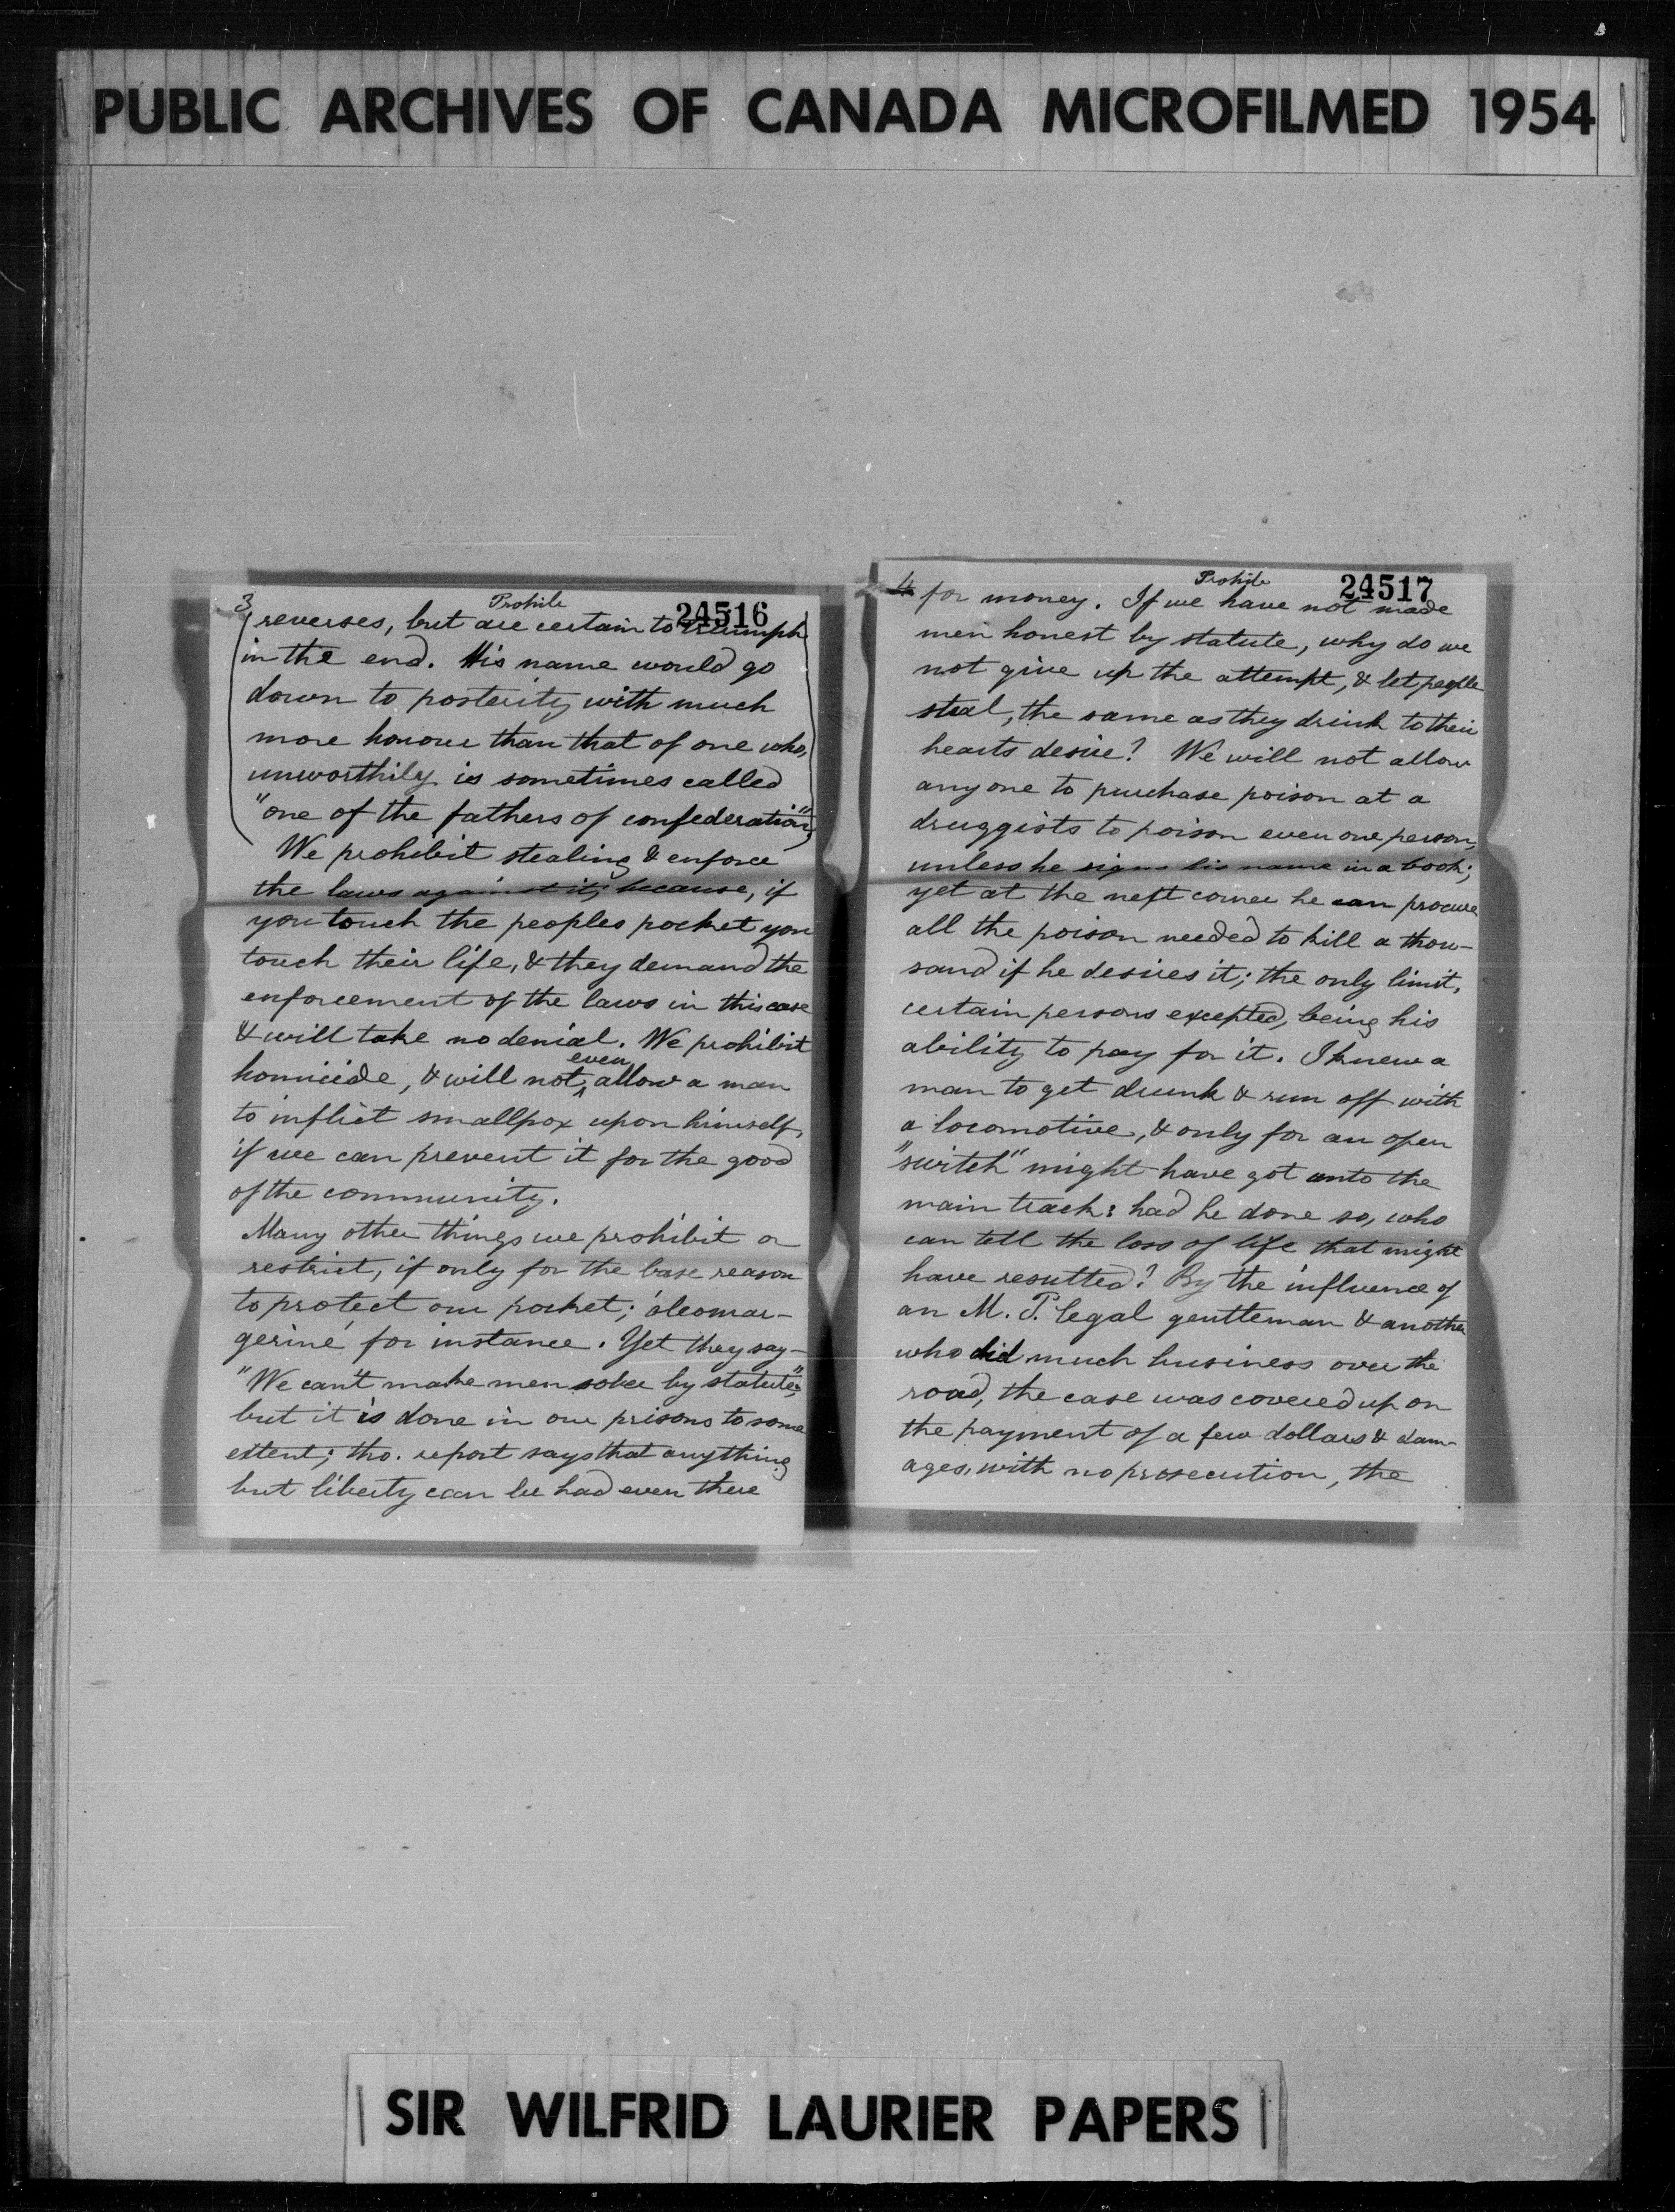 PUBLIC ARCHIVES OF CANADA MICROFILMED 1954
3 Prohib 24516
reverses, but are certain to triumph
in the end. His name would go
down to posterity with much
more honour than that of one who,
unworthily is sometimes called
"one of the fathers of confederation",
We prohibit stealing & enforce
the laws against it; because, if
you touch the peoples pocket you
touch their life, & they demand the
enforcement of the laws in this case
& will take no denial. We prohibit
homicide, & will not even allow a man
to inflict smallpox upon himself,
if we can prevent it for the good
of the community.
Many other things we prohibit or
restrict, if only for the base reason
to protect our pocket; oleomar-
gerine, for instance. Yet they say—
"We can't make men sober by statute";
but it is done in our prisons to some
extent; tho. report says that anything
but liberty can be had even there
4 Prohib 24517
for money. If we have not made
men honest by statute, why do we
not give up the attempt, & let people
steal, the same as they drink to their
hearts desire? We will not allow
anyone to purchase poison at a
druggists to poison even one person,
unless he signs his name in a book;
yet at the next corner he can procure
all the poison needed to kill a thou-
sand if he desires it; the only limit,
certain persons excepted, being his
ability to pay for it. I knew a
man to get drunk & run off with
a locomotive, & only for an open
"switch" might have got onto the
main track: had he done so, who
can tell the loss of life that might
have resulted? By the influence of
an M. P. legal gentleman & another
who did much business over the
road, the case was covered up on
the payment of a few dollars & dam-
ages, with no prosecution, the
SIR WILFRID LAURIER PAPERS